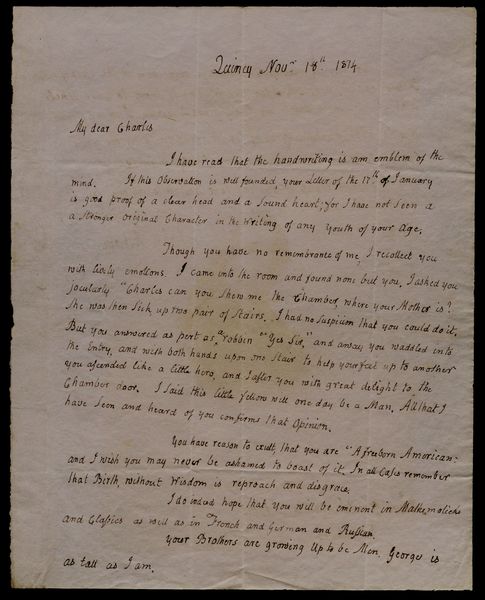 Quincy Novr 18th 1814
My dear Charles
I have read that the handwriting is am emblem of the
mind. If this Observation is well founded, your Letter of the 17th of January
is good proof of a clear head and a sound heart; for I have not seen a
a stronger original Character in the writing of any youth of your Age.
Though you have no remembrance of me, I recollect you
with lively emotions. I came into the room and found none but you. I asked you
jocularly "Charles can you shew me the Chamber where your Mother is?
She was then sick up two pair of Stairs. I had no suspicion that you could do it.
But you answered as pert as a robben "Yes Sir," and away you waddled into
the Entry, and with both hands upon one stair to help your feet up to another
you ascended like a little hero, and I after you with great delight to the
Chamber door. I said this little fellow will one day be a Man. All that I
have seen and heard of you confirms that opinion.
You have reason to exult, that you are "A freeborn American"
and I wish you may never be ashamed to boast of it. In all Cases remember
that Birth without Wisdom is reproach and disgrace.
I do indeed hope that you will be eminent in Mathematicks
and Classics as well as in French and German and Russian.
your Brothers are growing Up to be Men. George is
as tall as I am.